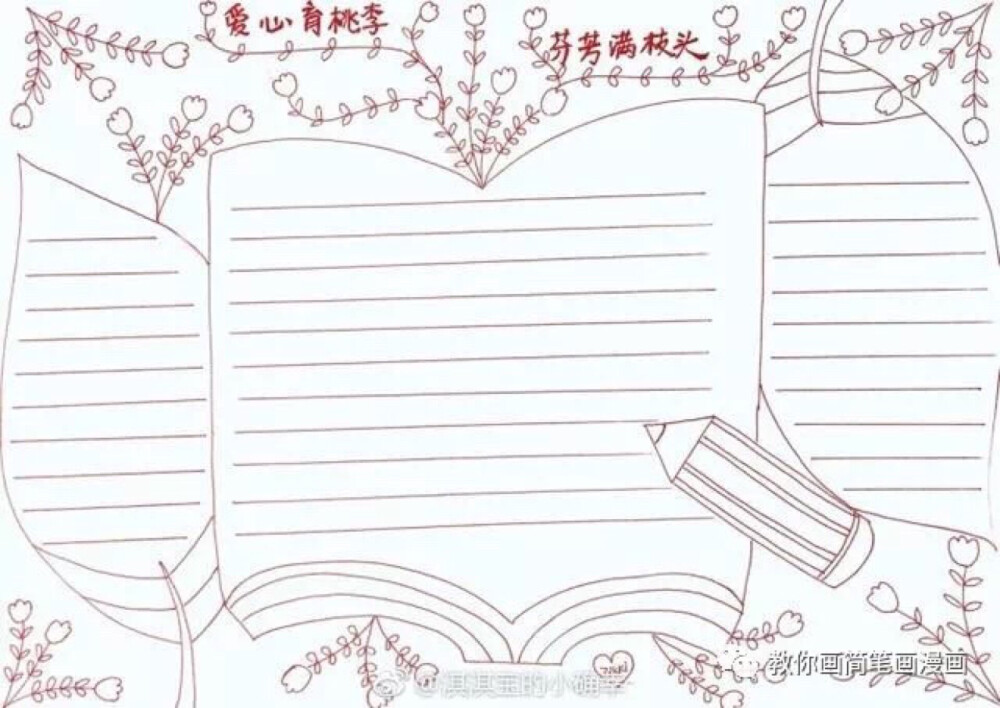 爱心育桃李
芬芳满枝头
教你画简笔画漫画
@淇淇宝的小确幸